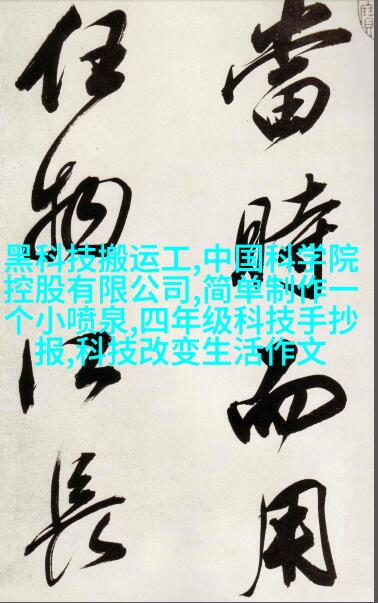 當時而用
任物長
黑科技搬运工,中国科学院
控股有限公司,简单制作一
个小喷泉,四年级科技手抄
报,科技改变生活作文